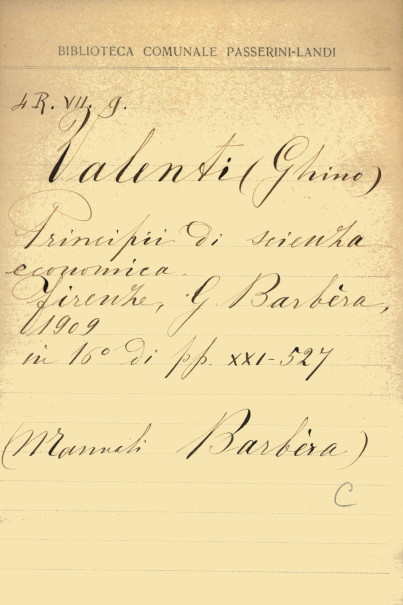 BIBLIOTECA COMUNALE PASSERINI-LANDI
4 R. VII. 9.
Valenti (Ghino)
Principii di scienza
economica.
Firenze, G Barbèra,
1909
in 16° di pp. XXI-527
(Manuali Barbèra)
C